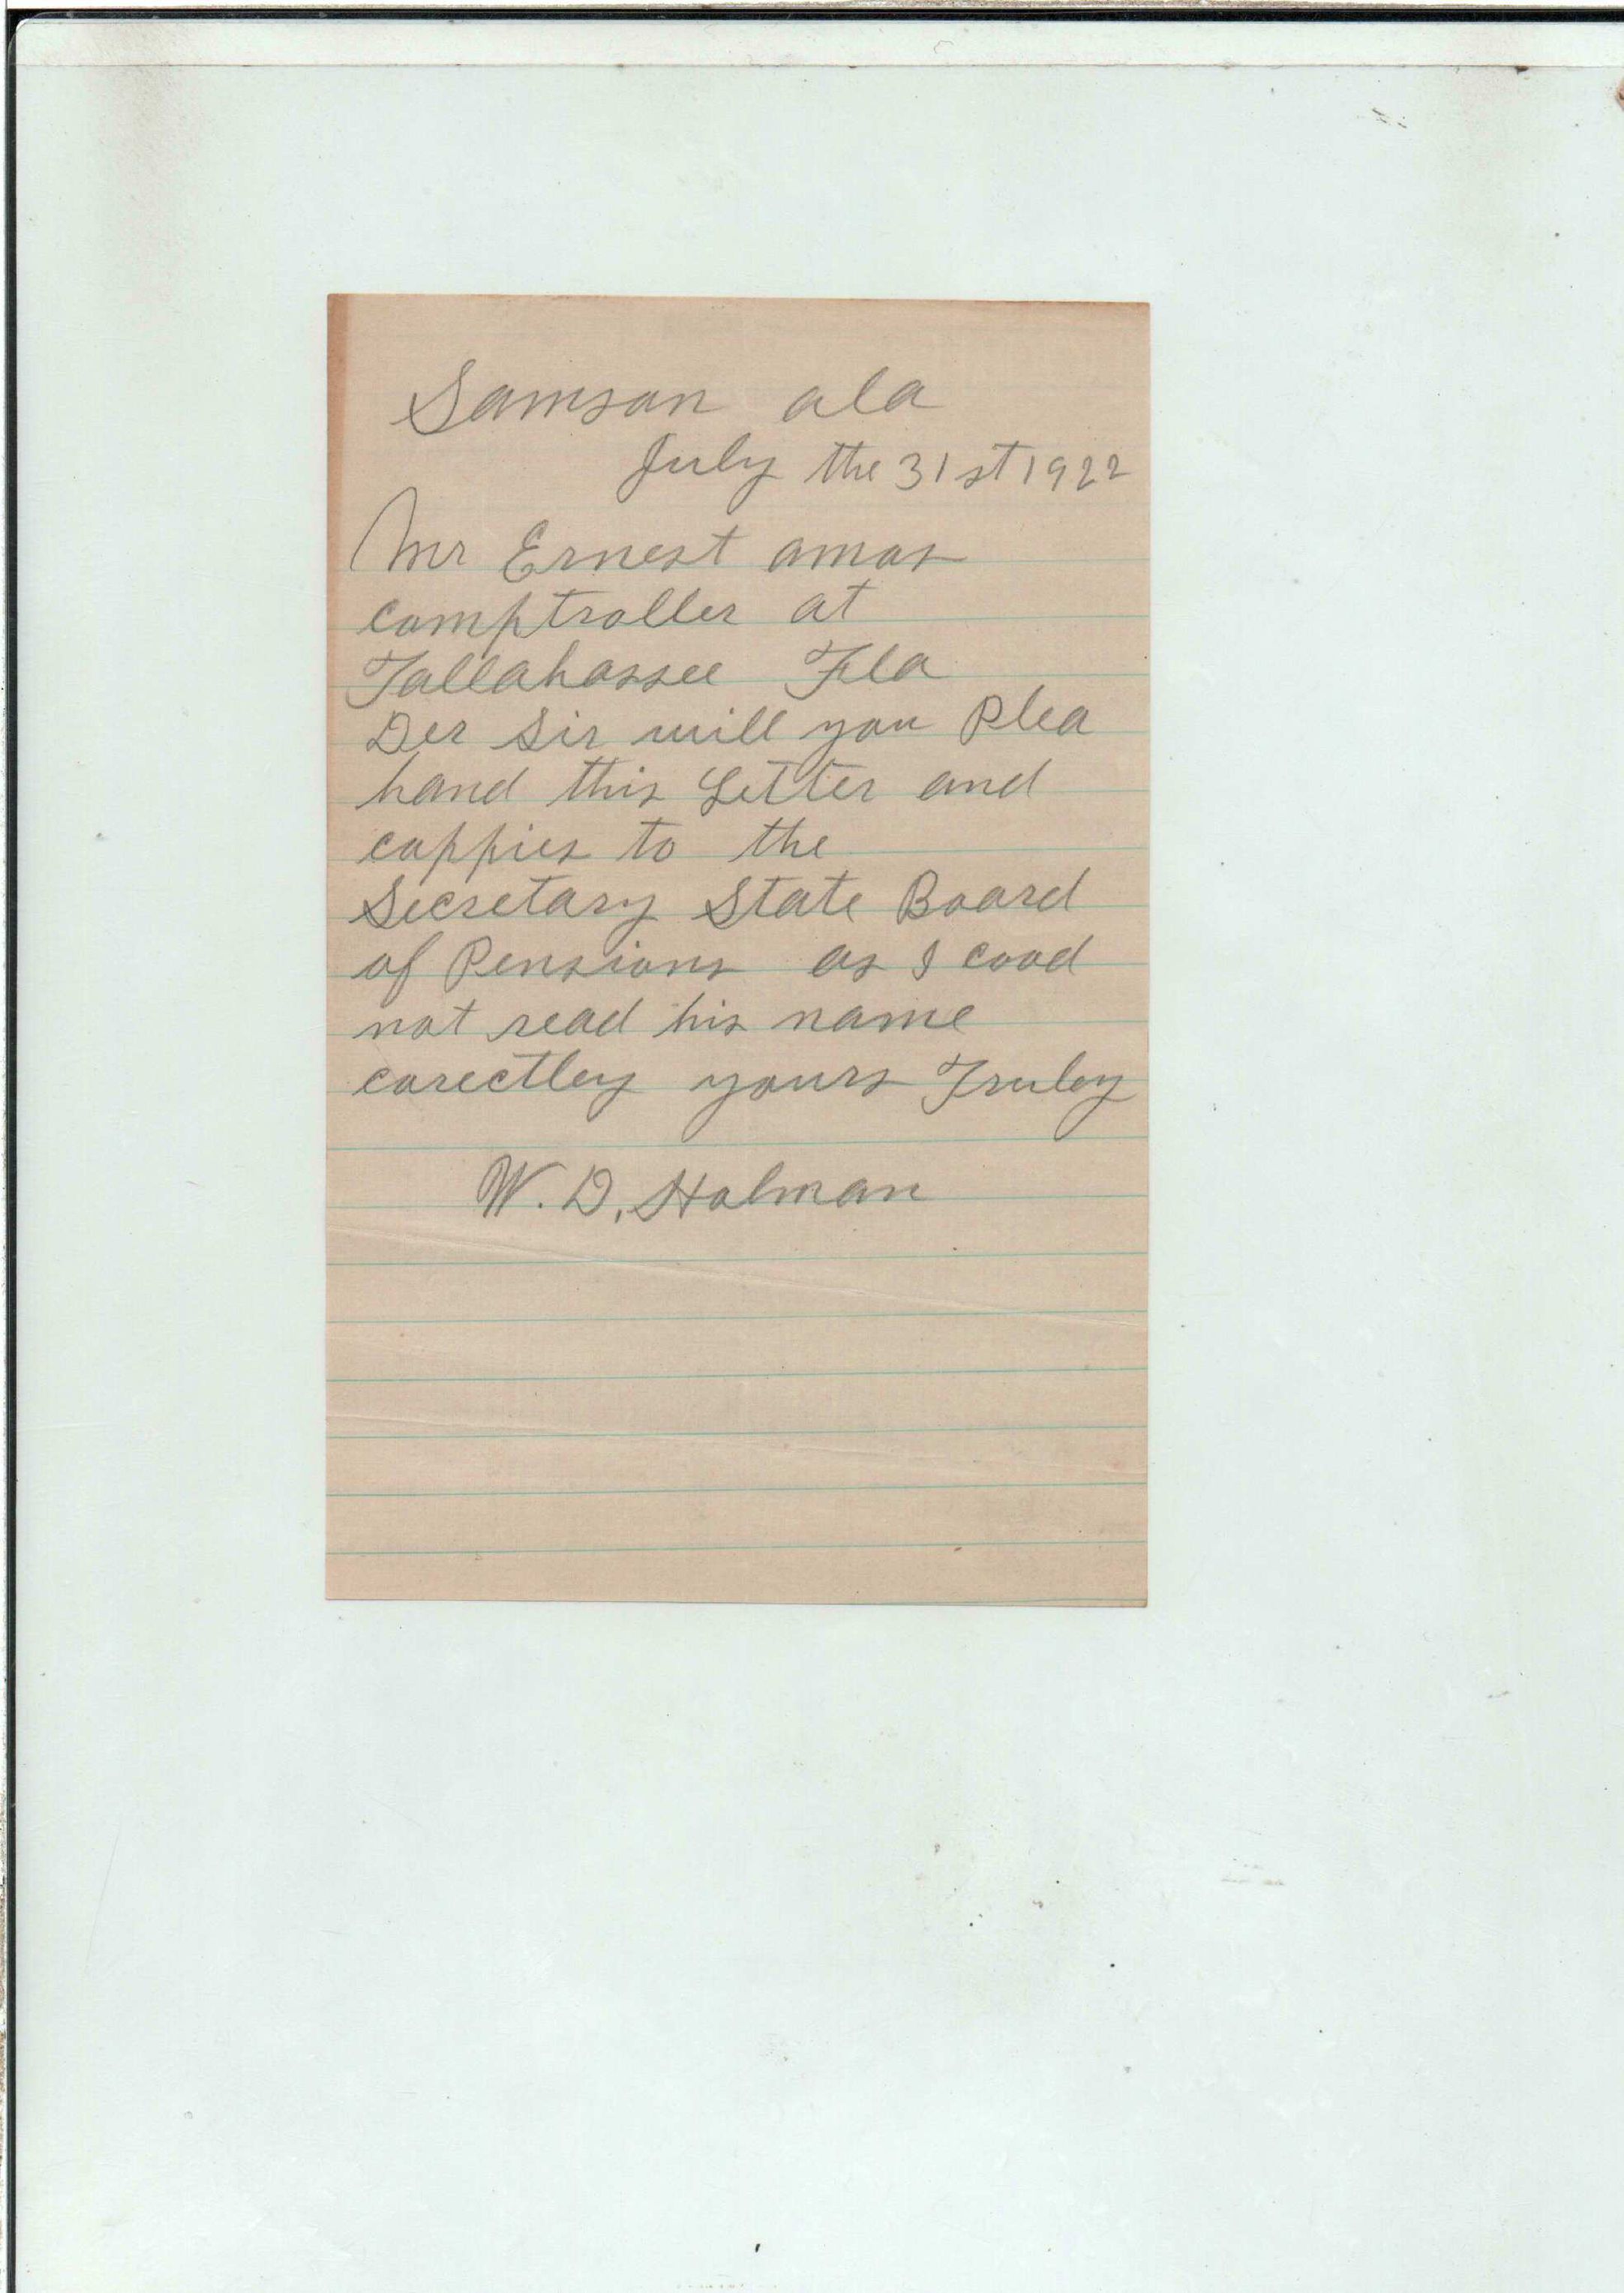 Samson ala
July the 31st 1922
Mr Ernest amos
comptroller at
Tallahassee Fla
Der Sir will you Plea
hand this Letter and
coppies to the
Secretary State Board
of Pensions as I cood
not read his name
corectley yours Truley
W. D. Holman